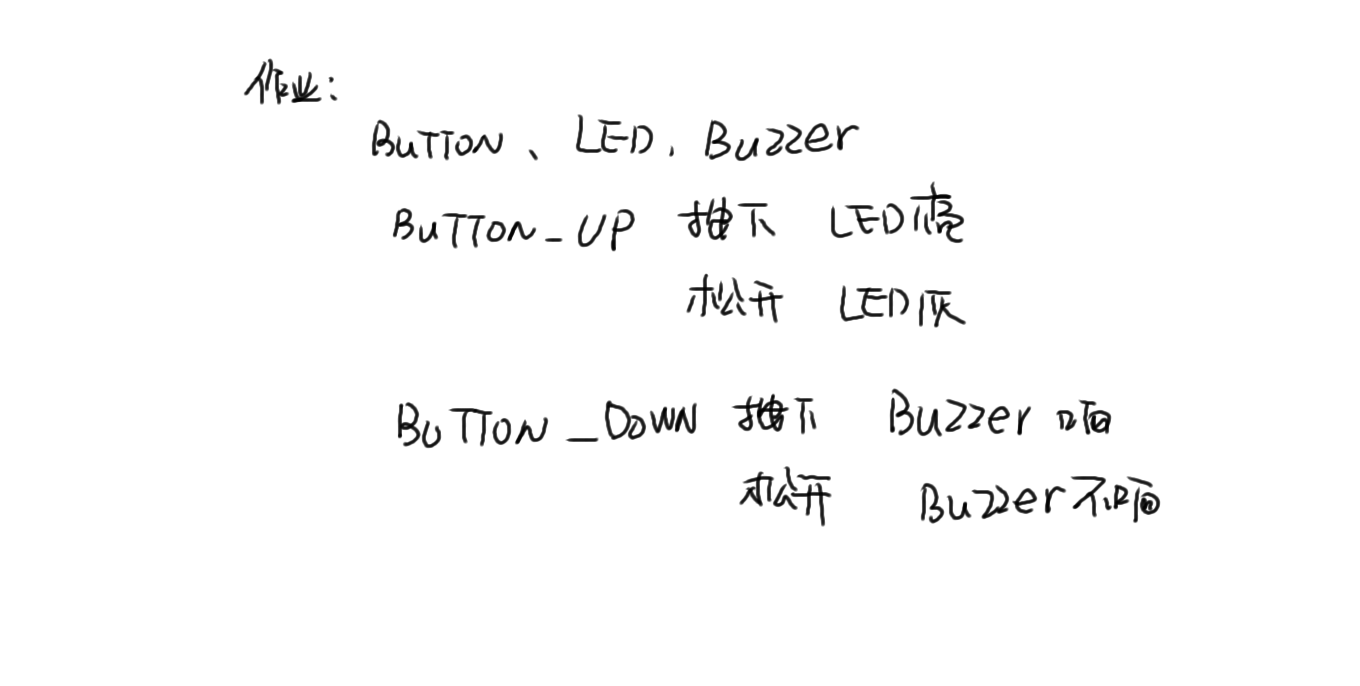 作业:
BuTTON、LED、Buzzer
BuTTON_UP 按下 LED亮
松开 LED灰
BuTTON_DOWN 按下 Buzzer 响
松开 Buzzer不响